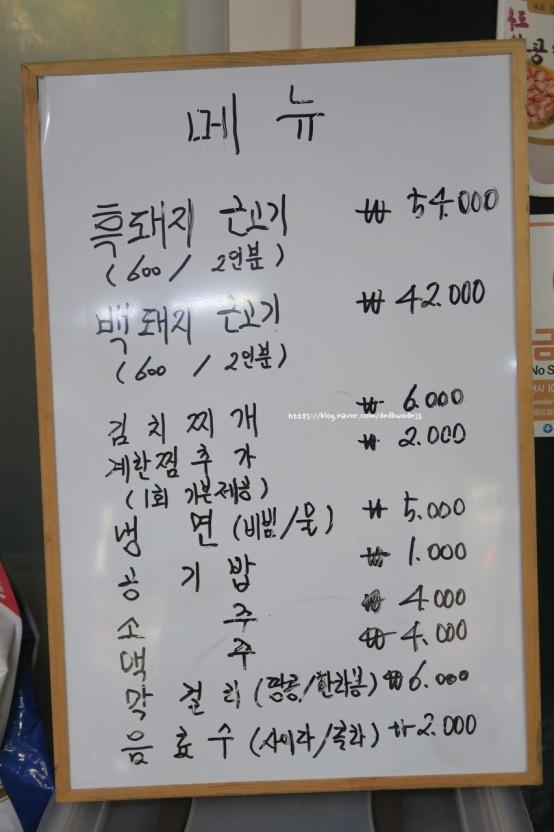 메뉴
흑돼지 근고기 ₩ 54.000
(600 / 2인분)
백돼지 근고기 ₩ 42.000
(600 / 2인분)
김치찌개 ₩ 6.000
https://blog.naver.com/dndbwodnjs
계란찜추가 ₩ 2.000
(1회 기본제공)
냉면 (비빔/물) ₩ 5.000
공기밥 ₩ 1.000
소주 ₩ 4.000
맥주 ₩ 4.000
막걸리 (땅콩/한라봉) ₩ 6.000
음료수 (사이다/콜라) ₩ 2.000
콩
금
No S